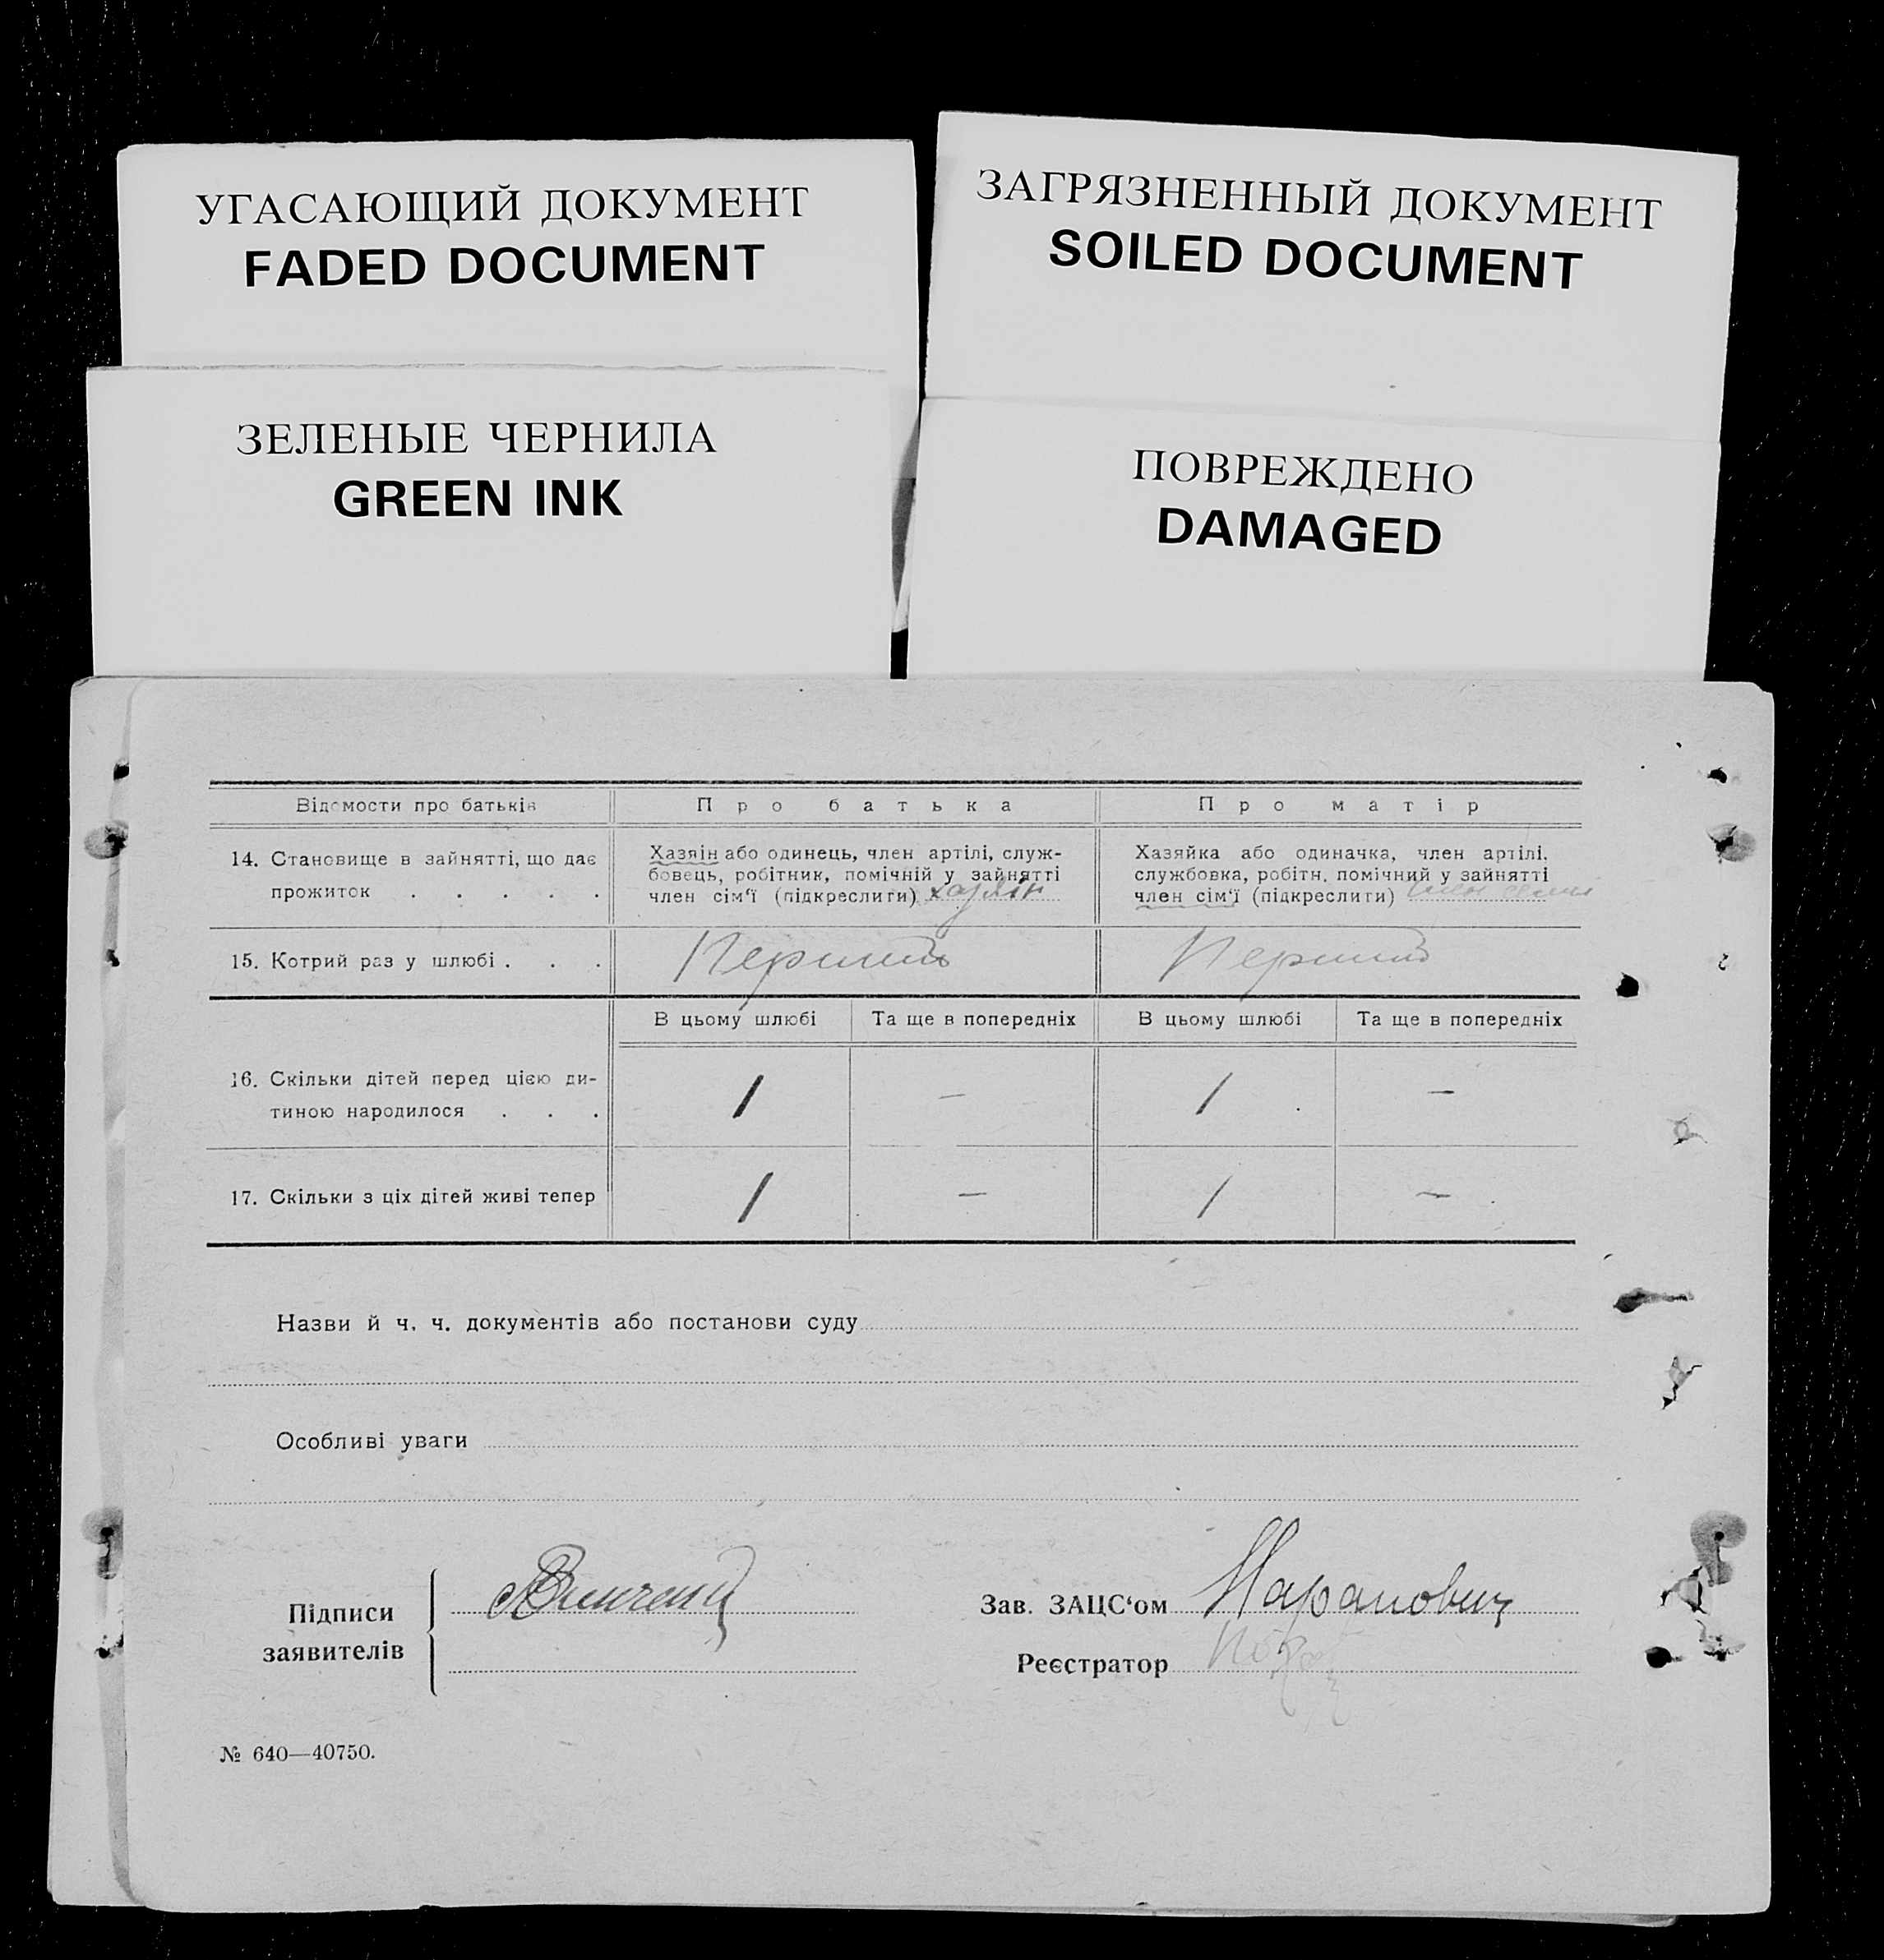 УГАСАЮЩИЙ ДОКУМЕНТ
FADED DOCUMENT
ЗАГРЯЗНЕННЫЙ ДОКУМЕНТ
SOILED DOCUMENT
ЗЕЛЕНЫЕ ЧЕРНИЛА
GREEN INK
ПОВРЕЖДЕНО
DAMAGED
Відомости про батьків Про батька Про матір
14. Становище в зайнятті, що дає
прожиток . . . . .
Хазяїн або одинець, член артілі, служ-
бовець, робітник, помічній у зайнятті
член сім'ї (підкреслити) хазяїн
Хазяйка або одиначка, член артілі,
службовка, робітн. помічний у зайнятті
член сім'ї (підкреслити) член
15. Котрий раз у шлюбі . . . Перший Перший
В цьому шлюбі Та ще в попередніх В цьому шлюбі Та ще в попередніх
16. Скільки дітей перед цією ди-
тиною народилося . . . 1 — 1 —
17. Скільки з ціх дітей живі тепер 1 — 1 —
Назви й ч. ч. документів або постанови суду
Особливі уваги
Підписи
заявителів
Зав. ЗАЦС'ом
Реєстратор
№ 640—40750.